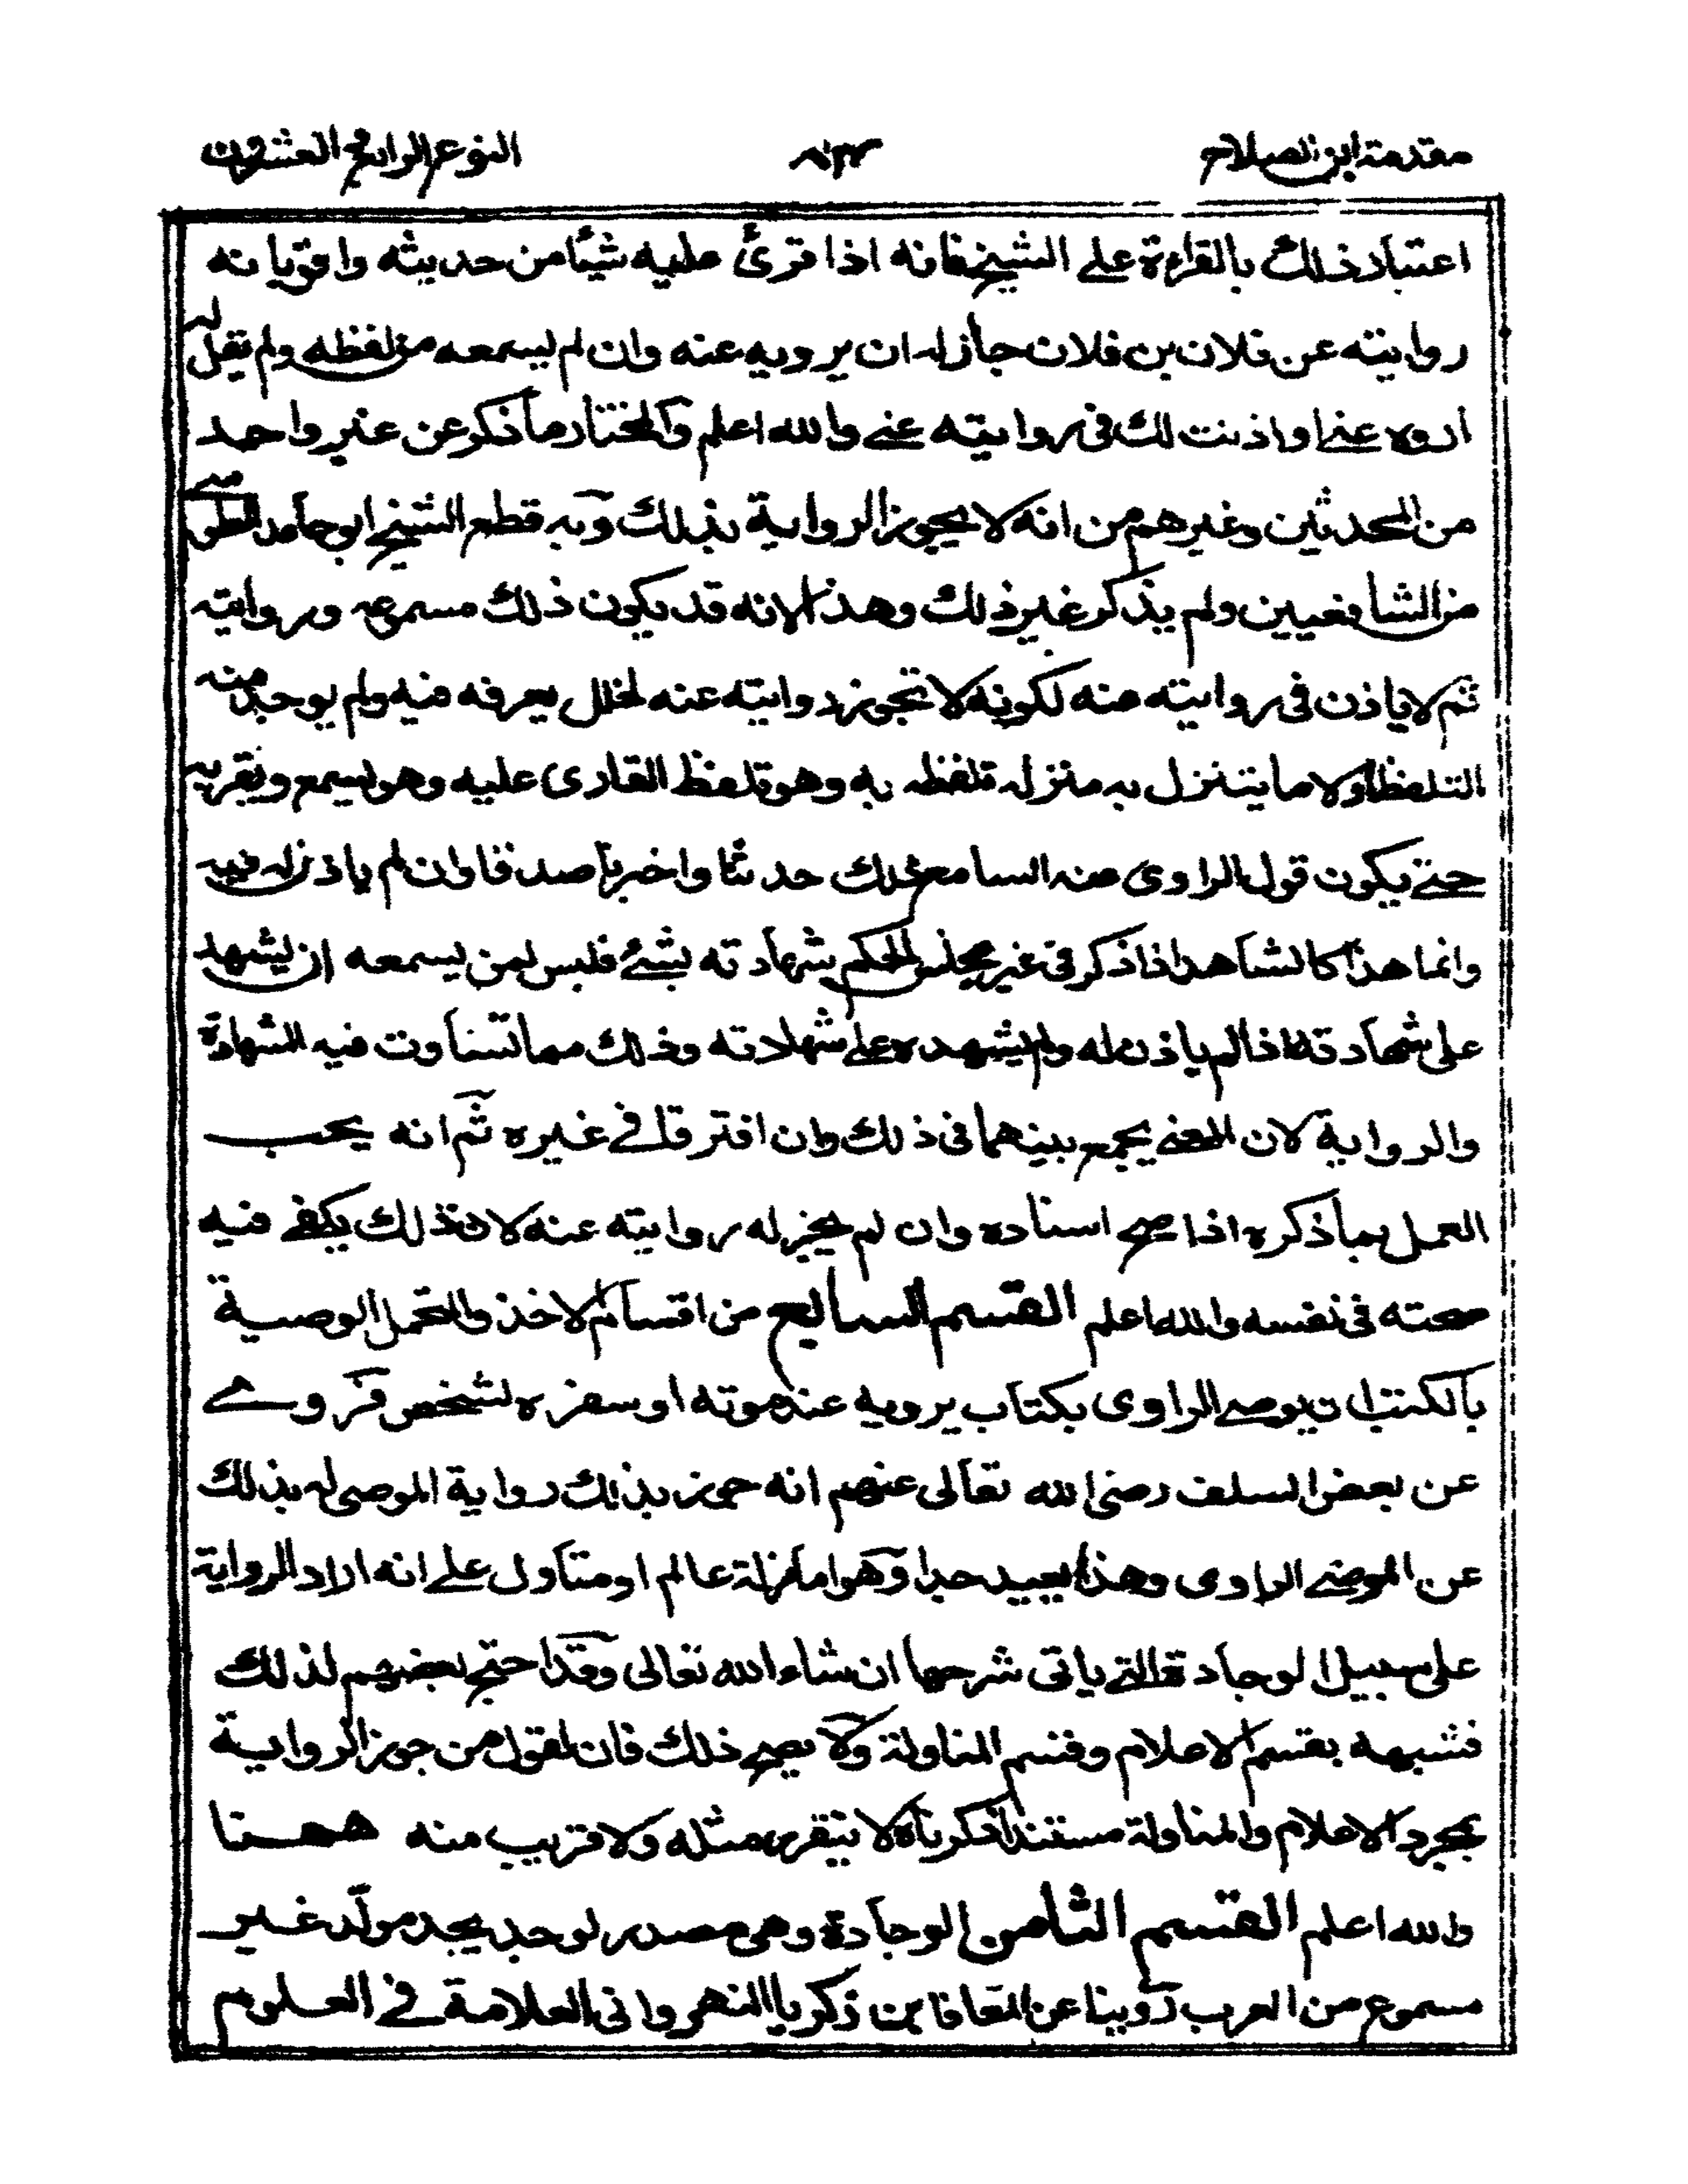 مقدمة ابن الصلاح
النوع الرابع والعشرون
اعتبار ذلك بالقراءة على الشيخ فانه اذا قرئ عليه شيئا من حديثه واقر بانه
روايته عن فلان بن فلان جاز له ان يرويه عنه وان لم يسمعه من لفظه ولم يقل له
اروه عني او اذنت لك في روايته عني والله اعلم والمختار ما ذكر عن غير واحد
من المحدثين وغيرهم من انه لا يجوز الرواية بذلك وبه قطع الشيخ ابو حامد الطوسي
من الشافعيين ولم يذكر غير ذلك وهذا لانه قد يكون ذلك مسموعه وروايته
ثم لا ياذن في روايته عنه لكونه لا تجوز روايته عنه لخلل يعرفه فيه ولم يوجد منه
التلفظ ولا ما يتنزل به منزلة تلفظه به وهو تلفظ القارى عليه وهو يسمع ويقربه
حتى يكون قول الراوى عنه السامع ذلك حدثنا واخبرنا صدقا وان لم ياذن له فيه
وانما هذا كالشاهد اذا ذكر في غير مجلس الحكم شهادته بشئ فليس لمن يسمعه ان يشهد
على شهادته اذا لم ياذن له ولم يشهده على شهادته وذلك مما تساوت فيه الشهادة
والرواية لان المعنى يجمع بينهما في ذلك وان افترقا في غيره ثم انه يجب
العمل بما ذكره اذا صح اسناده وان لم يجز له روايته عنه لان ذلك يكفى فيه
صحته في نفسه والله اعلم القسم السابع من اقسام الاخذ والتحمل الوصية
بالكتب ان يوصى الراوى بكتاب يرويه عند موته او سفره لشخص فروى
عن بعض السلف رضى الله تعالى عنهم انه جوز بذلك رواية الموصى له بذلك
عن الموصى الراوى وهذا بعيد جدا وهو اما زلة عالم او متأول على انه اراد الرواية
على سبيل الوجادة التي ياتى شرحها ان شاء الله تعالى وقد احتج بعضهم لذلك
فشبهه بقسم الاعلام وقسم المناولة ولا يصح ذلك فان لقول من جوز الرواية
بمجرد الاعلام والمناولة مستندا ذكرناه لا يتقرر مثله ولا قريب منه ههنا
والله اعلم القسم الثامن الوجادة وهي مصدر لوجد يجد مولد غير
مسموع من العرب روينا عن المعافا بن زكريا النهروانى العلامة في العلوم